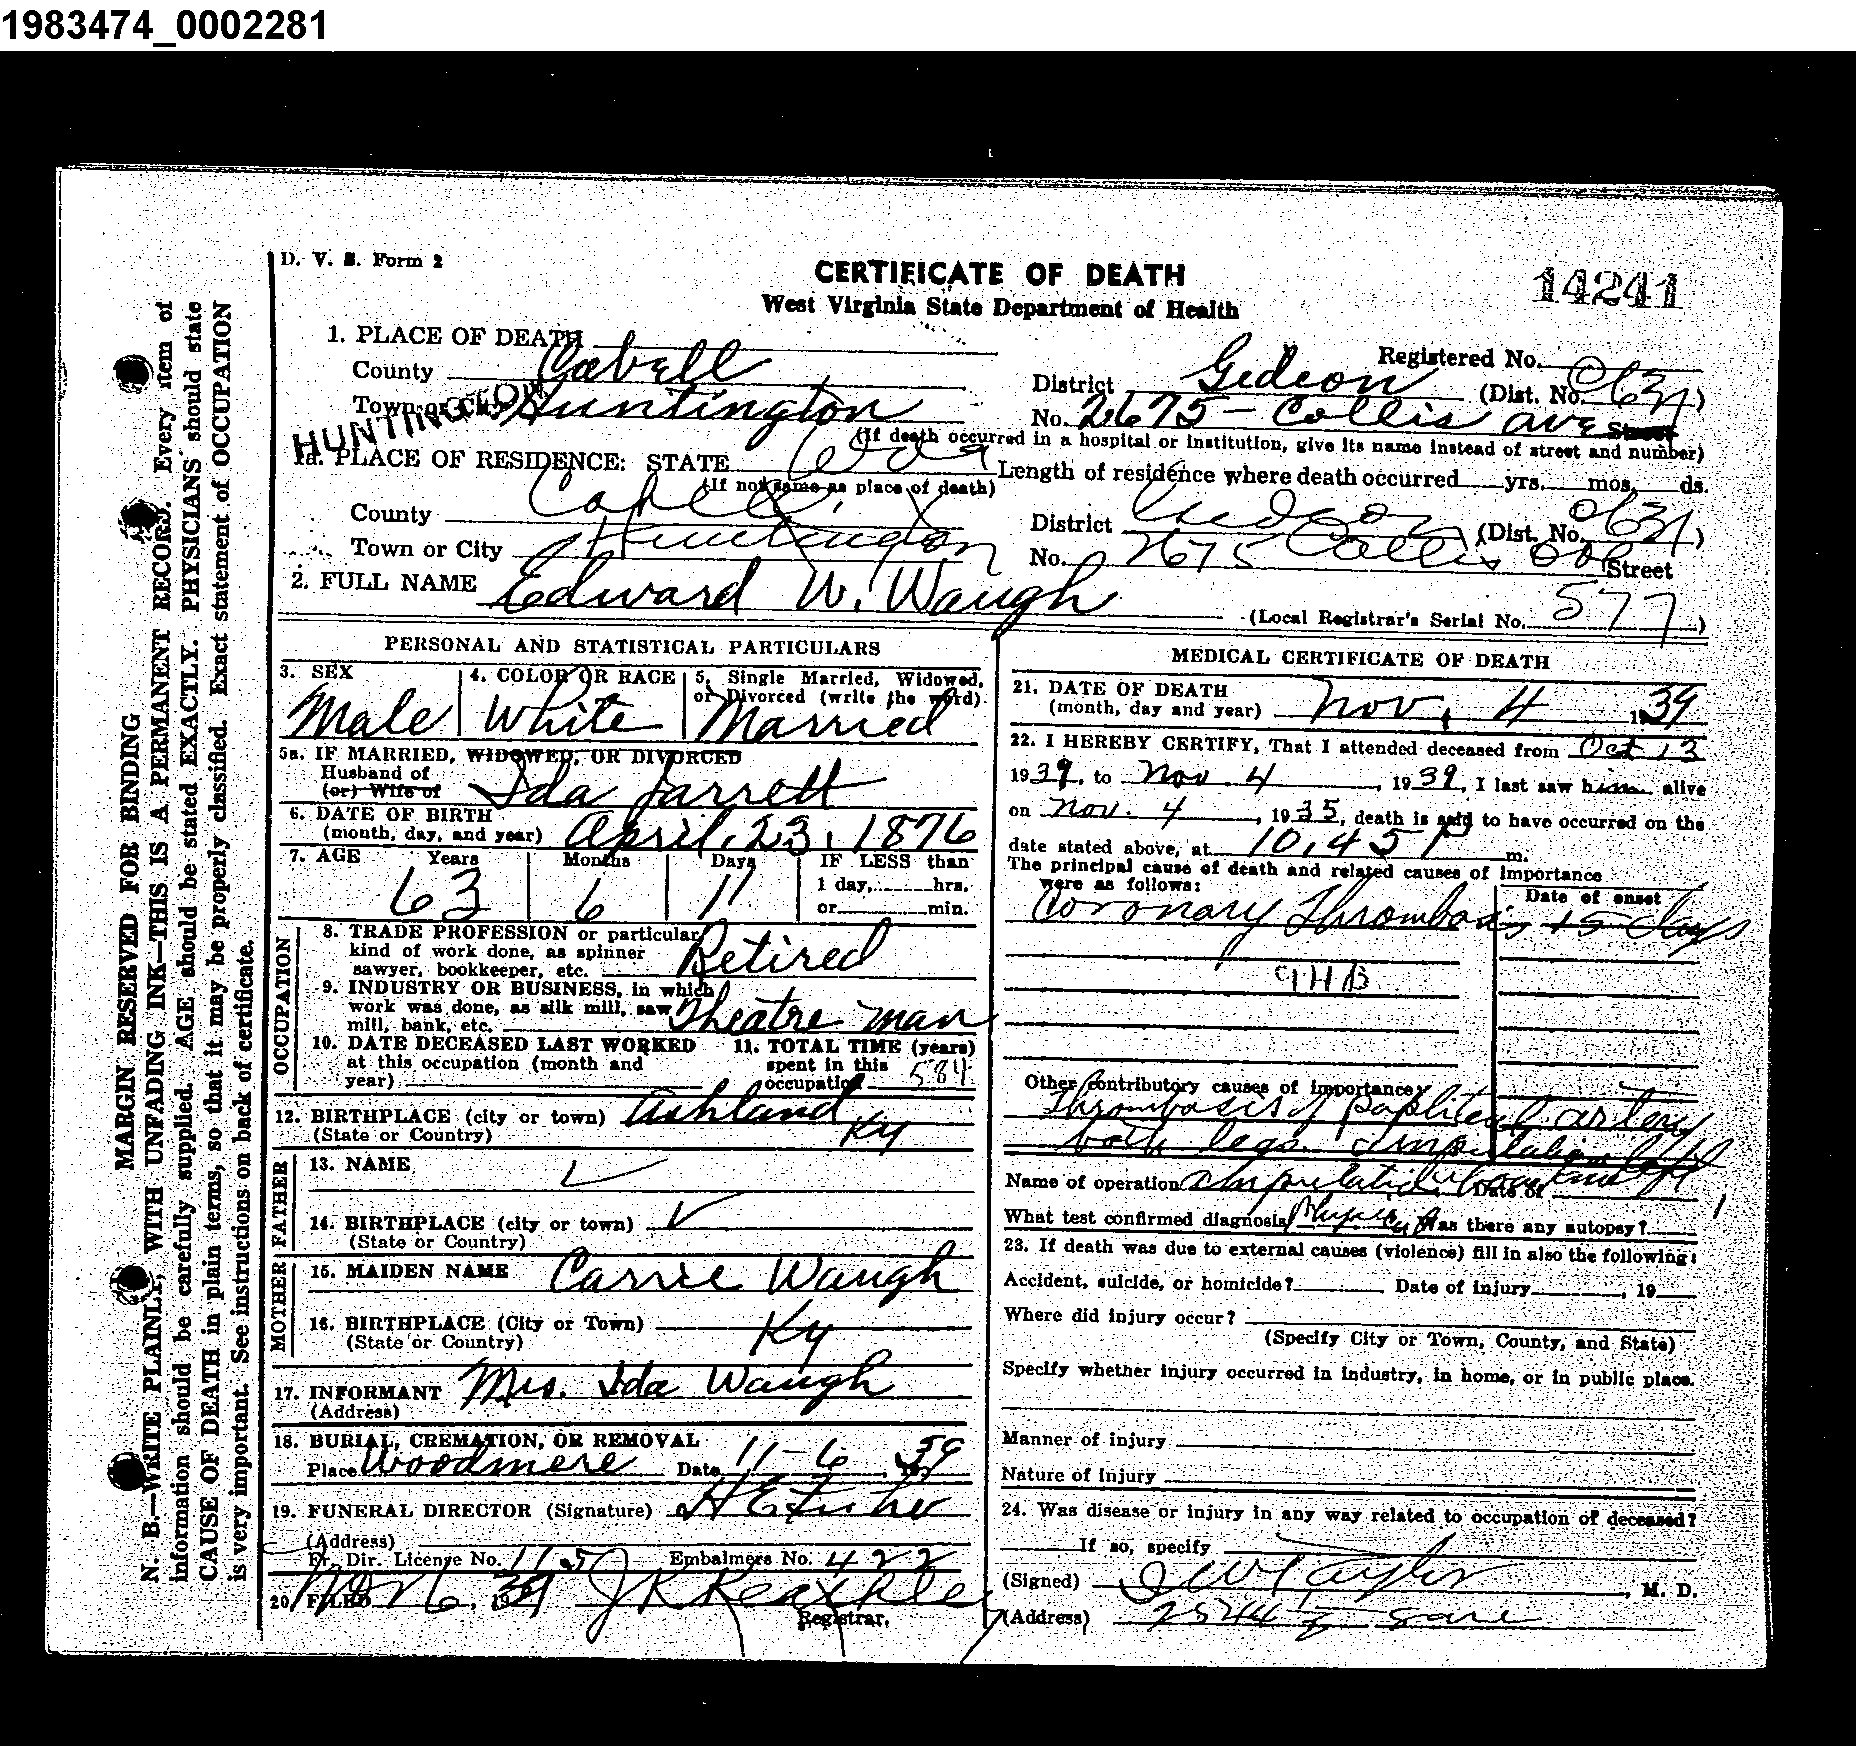 1983474_0002281
D. V. S. Form 2
CERTIFICATE OF DEATH
14241
West Virginia State Department of Health
1. PLACE OF DEATH
Registered No.
County Cabell
District Gedeon (Dist. No. 0631)
Town or City Huntington
No. 2675 - Collis ave Street
HUNTINGTON
(If death occurred in a hospital or institution, give its name instead of street and number)
1a. PLACE OF RESIDENCE: STATE W Va
Length of residence where death occurred yrs. mos. ds.
(If not same as place of death)
County Cabell
District Gideon (Dist. No. 0631)
Town or City Huntington
No. 2675 Collis Street
2. FULL NAME Edward W. Waugh
(Local Registrar's Serial No. 577)
PERSONAL AND STATISTICAL PARTICULARS
3. SEX Male
4. COLOR OR RACE White
5. Single Married, Widowed, or Divorced (write the word) Married
5a. IF MARRIED, WIDOWED, OR DIVORCED
Husband of
(or) Wife of Ida Jarrett
6. DATE OF BIRTH
(month, day, and year) April, 23, 1876
7. AGE Years 63 Months 6 Days 11 IF LESS than
1 day, hrs.
or min.
OCCUPATION
8. TRADE PROFESSION or particular
kind of work done, as spinner
sawyer, bookkeeper, etc. Retired
9. INDUSTRY OR BUSINESS, in which
work was done, as silk mill, saw
mill, bank, etc. Theatre man
10. DATE DECEASED LAST WORKED
at this occupation (month and
year)
11. TOTAL TIME (years)
spent in this
occupation 584
12. BIRTHPLACE (city or town) Ashland
(State or Country) Ky
FATHER
13. NAME
14. BIRTHPLACE (city or town)
(State or Country)
MOTHER
15. MAIDEN NAME Carrie Waugh
16. BIRTHPLACE (City or Town)
(State or Country) Ky
17. INFORMANT Mrs. Ida Waugh
(Address)
18. BURIAL, CREMATION, OR REMOVAL
Place Woodmere Date 11-6, 39
19. FUNERAL DIRECTOR (Signature)
(Address)
Fr. Dir. License No. 115 Embalmers No. 422
20. FILED Nov 6, 1939
Registrar.
MEDICAL CERTIFICATE OF DEATH
21. DATE OF DEATH
(month, day and year) Nov, 4, 1939
22. I HEREBY CERTIFY, That I attended deceased from Oct 13
1939, to Nov 4, 1939, I last saw him alive
on Nov. 4, 1935, death is said to have occurred on the
date stated above, at 10,45 P m.
The principal cause of death and related causes of importance
were as follows:
Date of onset
Coronary Thrombosis 15 days
94B
Other contributory causes of importance:
Thrombosis of popliteal artery
both legs. Amputation left
Name of operation Amputation Date of
What test confirmed diagnosis Was there any autopsy?
23. If death was due to external causes (violence) fill in also the following:
Accident, suicide, or homicide? Date of injury , 19
Where did injury occur?
(Specify City or Town, County, and State)
Specify whether injury occurred in industry, in home, or in public place.
Manner of injury
Nature of injury
24. Was disease or injury in any way related to occupation of deceased?
If so, specify
(Signed) Taylor, M. D.
(Address)
MARGIN RESERVED FOR BINDING
N. B.—WRITE PLAINLY, WITH UNFADING INK—THIS IS A PERMANENT RECORD. Every item of
information should be carefully supplied. AGE should be stated EXACTLY. PHYSICIANS should state
CAUSE OF DEATH in plain terms, so that it may be properly classified. Exact statement of OCCUPATION
is very important. See instructions on back of certificate.